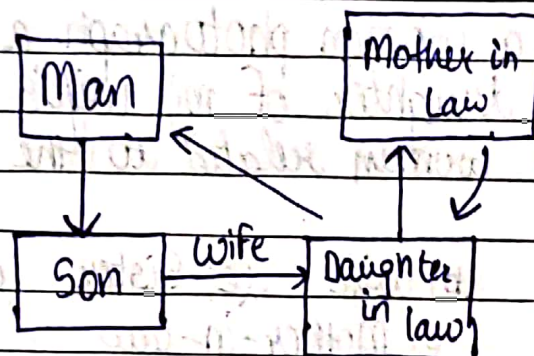 Man
Mother in
Law
Son
wife
Daughter
in law